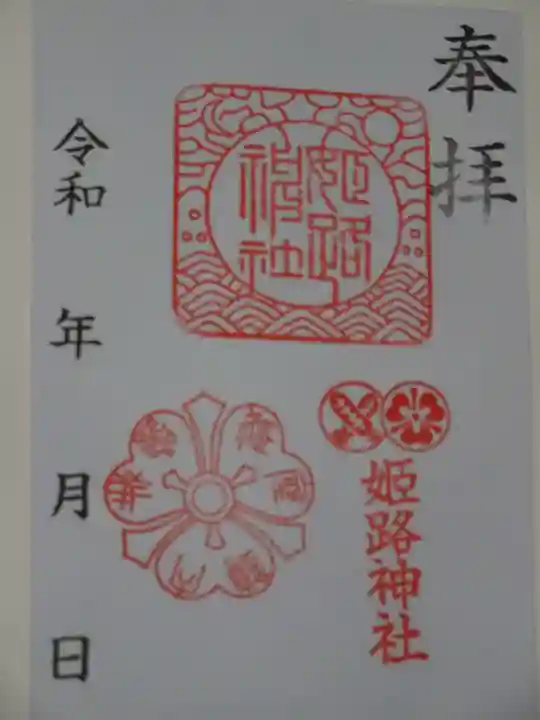 奉拝
姫路
神社
姫路神社
令和 年 月 日